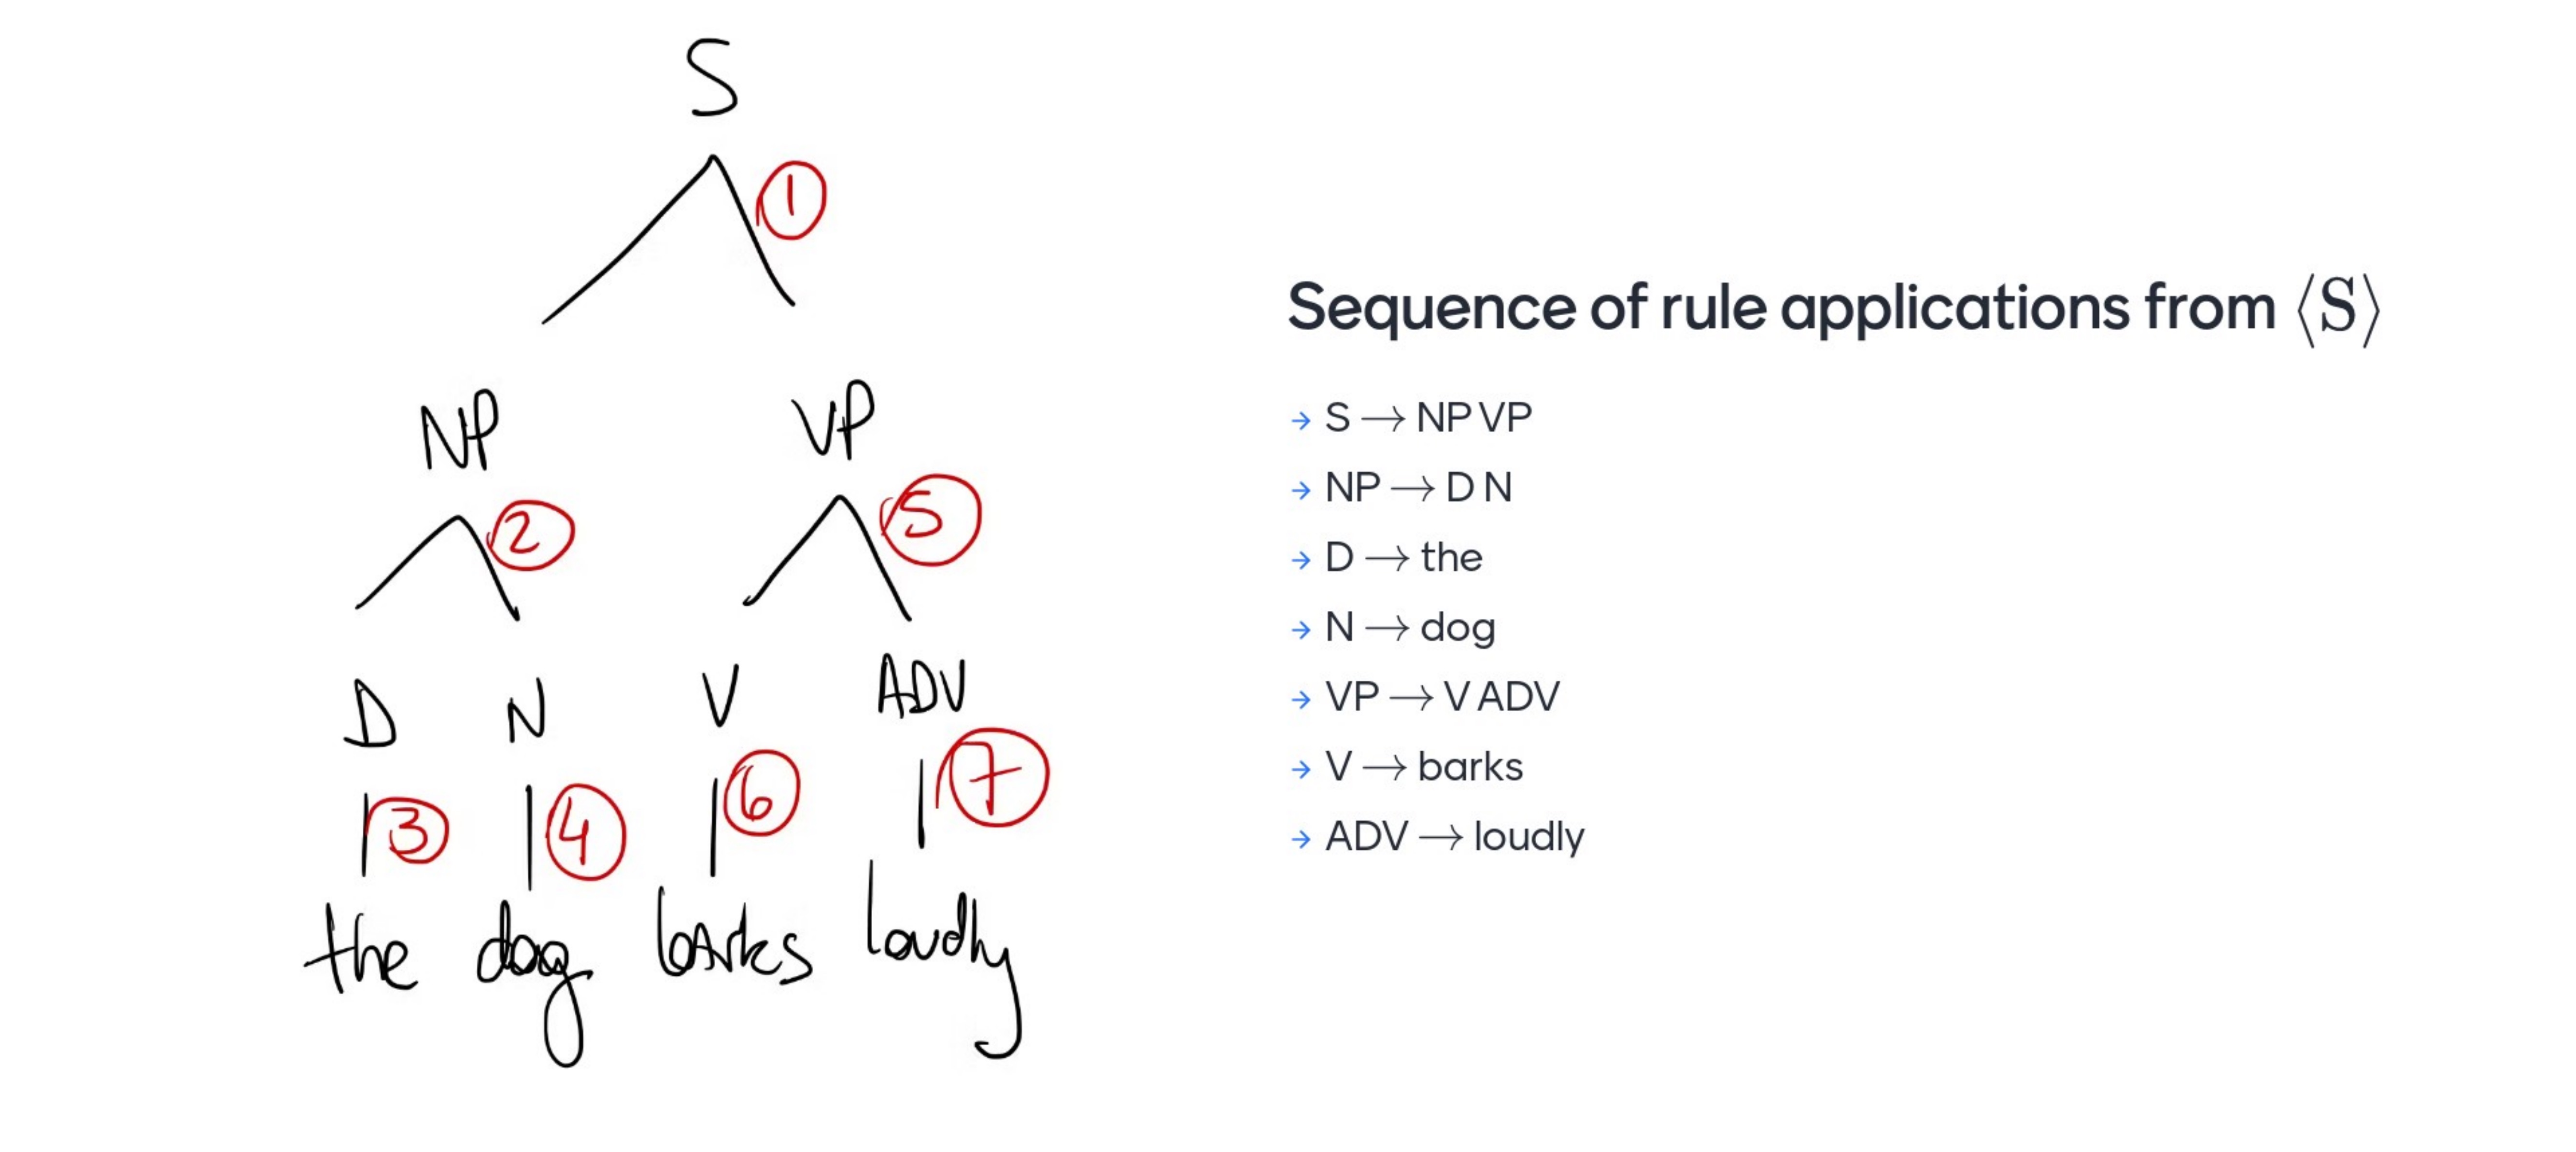 S
1
NP VP
2 5
D N V ADV
3 4 6 7
the dog barks loudly
Sequence of rule applications from ⟨S⟩
→ S → NP VP
→ NP → D N
→ D → the
→ N → dog
→ VP → V ADV
→ V → barks
→ ADV → loudly